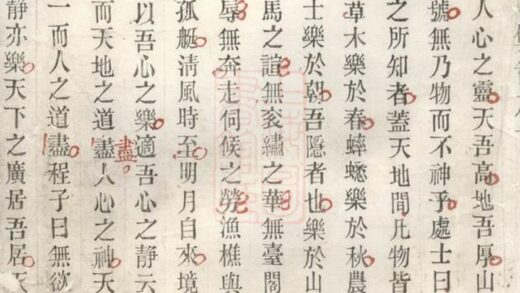 人心之靈天吾高地吾厚山
號無乃物而不神乎處士曰
之所知者蓋天地間凡物皆
草木樂於春蟀蟋樂於秋農
士樂於朝吾隱者也樂於山
馬之諠無衮繡之華無臺閣
辱無奔走伺候之勞漁樵與
孤艇淸風時至明月自來境
以吾心之樂適吾心之静云
而天地之道盡人心之神天
盡
一而人之道盡程子曰無欲
静亦樂天下之廣居吾居天